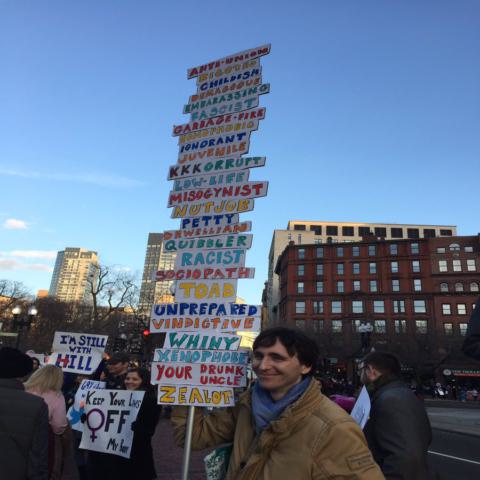 ANTI-UNION
BIGOTED
CHILDISH
DEMAGOGUE
EMBARASSING
FASCIST
GARBAGE-FIRE
HOMOPHOBIC
IGNORANT
JUVENILE
KKKORRUPT
LOW-LIFE
MISOGYNIST
NUTJOB
ORWELLIAN
PETTY
QUIBBLER
RACIST
SOCIOPATH
TOAD
UNPREPARED
VINDICTIVE
WHINY
XENOPHOBE
YOUR DRUNK
UNCLE
ZEALOT
I'M STILL
WITH
HILL
KEEP YOUR LAWS
OFF
MY BODY